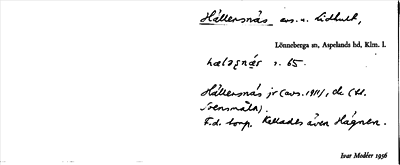 Hällersnäs avs. u. Lidhult,
Lönneberga sn, Aspelands hd, Klm. l.
s. 65.
Hällersnäs jr (avs. 1911), de (bl.
Svensmåla).
F.d. torp. Kallades även Hägnen.
Ivar Modéer 1956